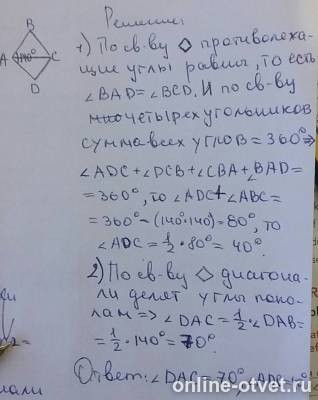 Решение:
B
A 140° C
D
1) По св-ву ◇ противолежа-
щие углы равны, то есть
∠BAD = ∠BCD. И по св-ву
четырехугольников
сумма всех углов = 360° ⇒
∠ADC + ∠DCB + ∠CBA + ∠BAD =
= 360°, то ∠ADC + ∠ABC =
= 360° - (140°·140) = 80°, то
∠ADC = 1/2 · 80° = 40°.
2) По св-ву ◇ диагона-
ли делят углы попо-
лам => ∠DAC = 1/2 · ∠DAB =
= 1/2 · 140° = 70°.
Ответ: ∠DAC = 70°,
online-otvet.ru